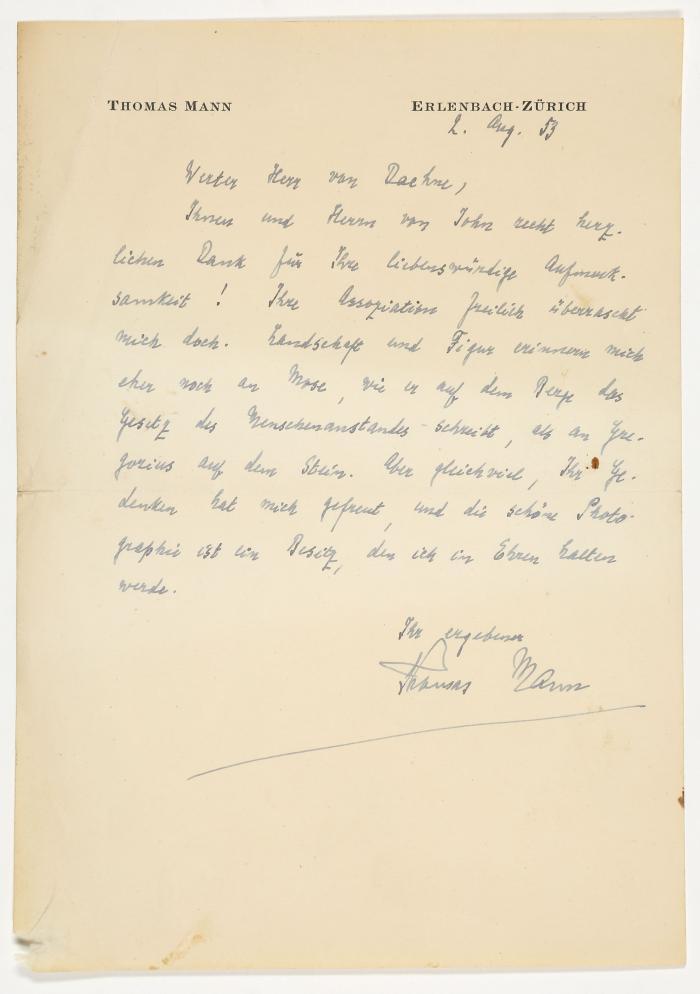 THOMAS MANN ERLENBACH-ZÜRICH
2. Aug. 53
Werter Herr von
Ihnen und Herrn von John recht herz-
lichen Dank für Ihre liebenswürdige Aufmerk-
samkeit! Ihre Assoziation freilich überrascht
mich doch. Landschaft und Figur erinnern mich
eher noch an Mose, wie er auf dem Berge das
Gesetz des Menschenanstandes schreibt, als an Gre-
gorius auf dem Stein. Aber gleichviel, Ihr Ge-
denken hat mich gefreut, und die schöne Photo-
graphie ist ein Besitz, den ich in Ehren halten
werde.
Ihr ergebener
Thomas Mann